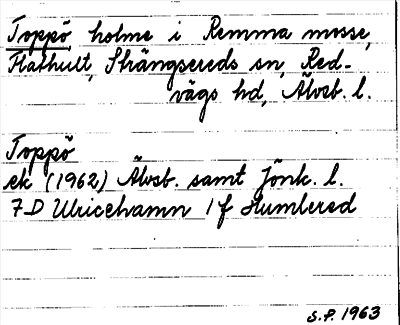 Toppö, holme i Remma mosse,
Flathult, Strängsereds sn, Red-
vägs hd, Älvsb. l.
Toppö
ek (1962) Älvsb. samt Jönk. l.
7D Ulricehamn 1f Humlered
S.F. 1963